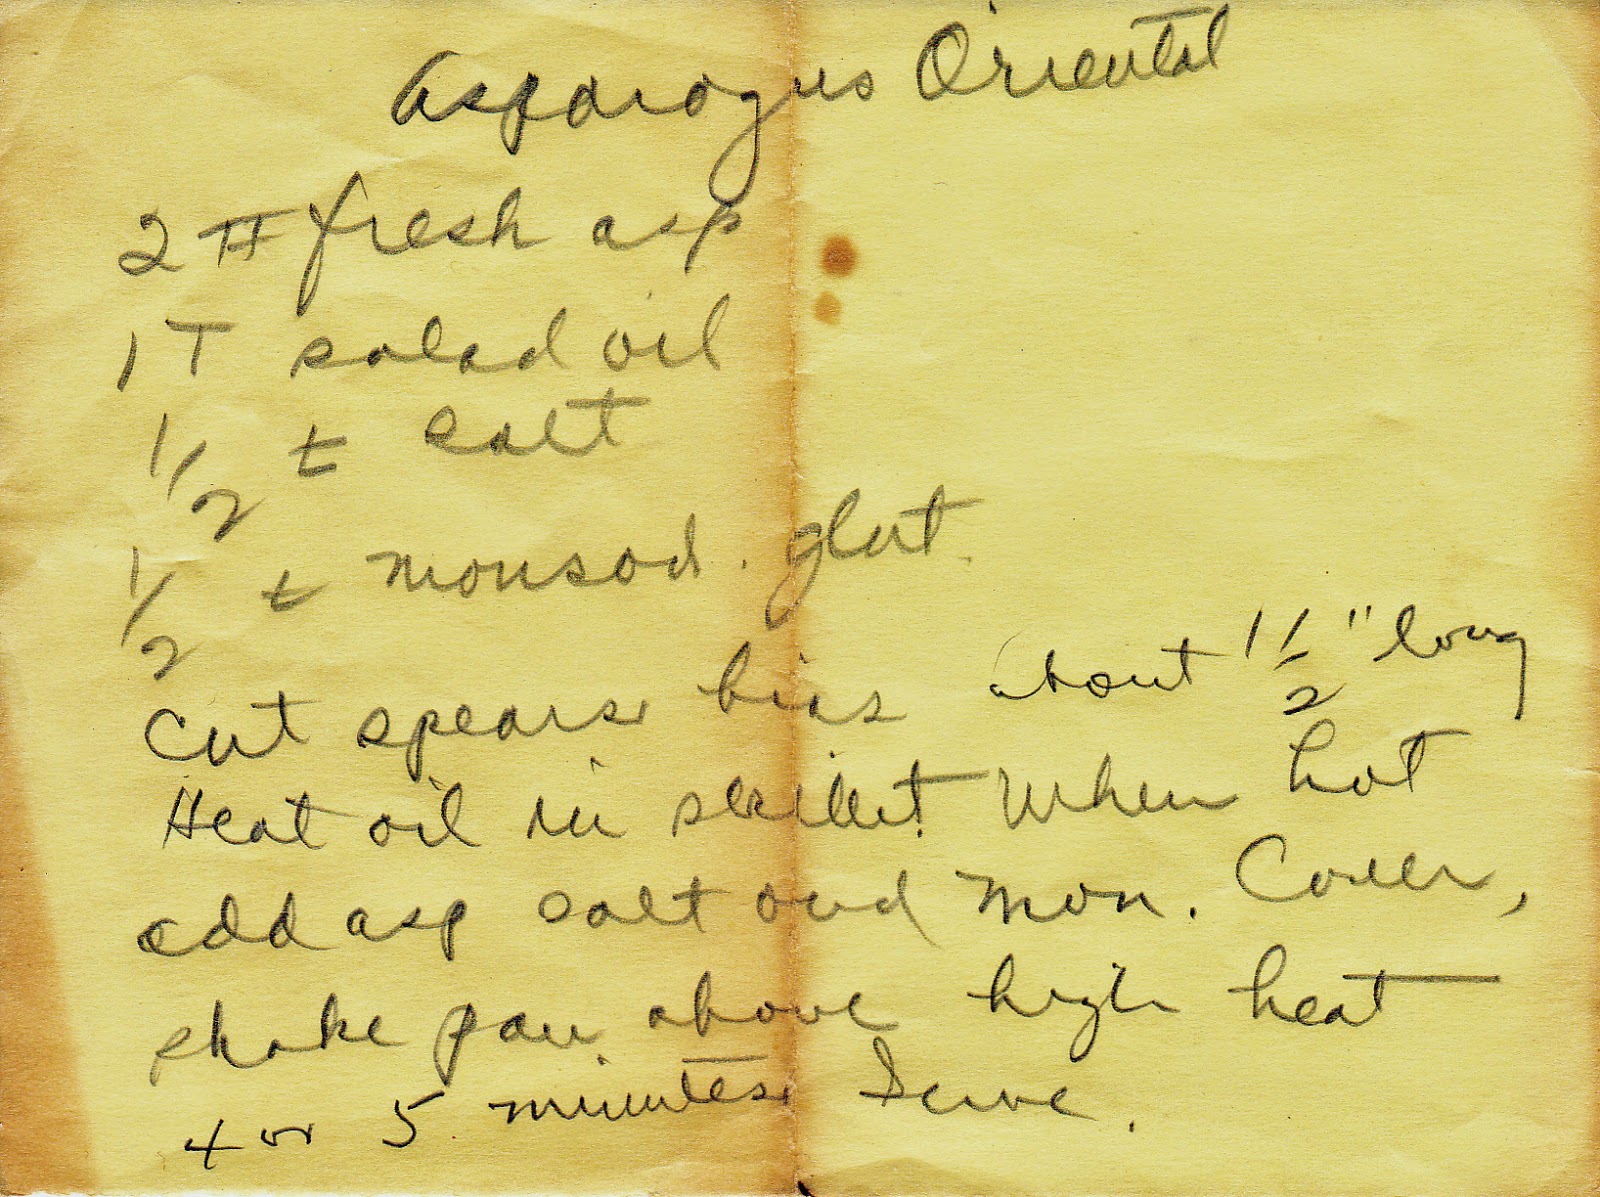 Asparagus Oriental
2 # fresh asp
1 T salad oil
1/2 t salt
1/2 t monsod. glut.
Cut spears bias about 1 1/2" long
Heat oil in skillet. When hot
add asp salt and mon. Cover,
shake pan above high heat
4 or 5 minutes. Serve.